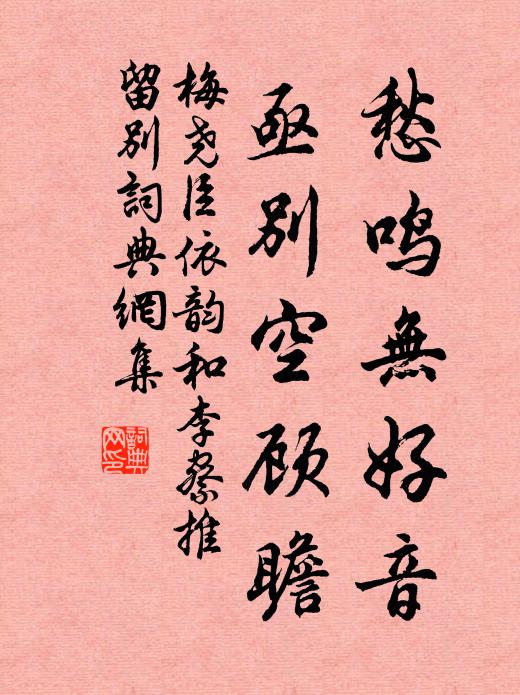 愁鸣無好音
亟别空顾瞻
梅尧臣依韵和李察推
留别詞典網集
詞典
网印